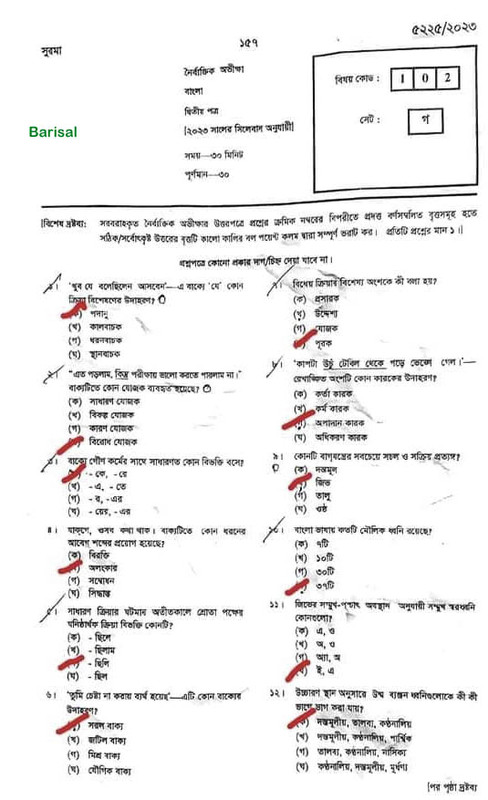 ৫২২৫/২০২৩
১৫৭
সুরমা
Barisal
নৈর্ব্যক্তিক অভীক্ষা
বাংলা
দ্বিতীয় পত্র
[২০২৩ সালের সিলেবাস অনুযায়ী]
সময়—৩০ মিনিট
পূর্ণমান—৩০
বিষয় কোড : 1 0 2
সেট : গ
[বিশেষ দ্রষ্টব্য: সরবরাহকৃত নৈর্ব্যক্তিক অভীক্ষার উত্তরপত্রে প্রশ্নের ক্রমিক নম্বরের বিপরীতে প্রদত্ত বর্ণসম্বলিত বৃত্তসমূহ হতে
সঠিক/সর্বোৎকৃষ্ট উত্তরের বৃত্তটি কালো কালির বল পয়েন্ট কলম দ্বারা সম্পূর্ণ ভরাট কর। প্রতিটি প্রশ্নের মান ১।]
প্রশ্নপত্রে কোনো প্রকার দাগ/চিহ্ন দেয়া যাবে না।
১। 'খুব যে বলেছিলেন আসবেন'—এ বাক্যে 'যে' কোন
ক্রিয়া বিশেষণের উদাহরণ?
পদাণু
(খ) কালবাচক
(গ) ধরনবাচক
(ঘ) স্থানবাচক
২। "এত পড়লাম, কিন্তু পরীক্ষায় ভালো করতে পারলাম না।"
বাক্যটিতে কোন যোজক ব্যবহৃত হয়েছে?
(ক) সাধারণ যোজক
(খ) বিকল্প যোজক
(গ) কারণ যোজক
বিরোধ যোজক
৩। বাক্যে গৌণ কর্মের সাথে সাধারণত কোন বিভক্তি বসে?
- কে, -রে
(খ) - এ, - তে
(গ) - র, -এর
(ঘ) - য়ের, -এর
৪। যাকগে, ওসব কথা থাক। বাক্যটিতে কোন ধরনের
আবেগ শব্দের প্রয়োগ হয়েছে?
(ক) বিরক্তি
অলংকার
(গ) সম্বোধন
(ঘ) সিদ্ধান্ত
৫। সাধারণ ক্রিয়ার ঘটমান অতীতকালে শ্রোতা পক্ষের
ঘনিষ্ঠার্থক ক্রিয়া বিভক্তি কোনটি?
(ক) - ছিলে
(খ) - ছিলাম
- ছিলি
(ঘ) - ছিল
৬। 'তুমি চেষ্টা না করায় ব্যর্থ হয়েছ'—এটি কোন বাক্যের
উদাহরণ?
সরল বাক্য
(খ) জটিল বাক্য
(গ) মিশ্র বাক্য
(ঘ) যৌগিক বাক্য
৭। বিধেয় ক্রিয়ার বিশেষ্য অংশকে কী বলা হয়?
(ক) প্রসারক
(খ) উদ্দেশ্য
(গ) যোজক
পূরক
৮। 'কাপটা উঁচু টেবিল থেকে পড়ে ভেঙ্গে গেল।'—
রেখাঙ্কিত অংশটি কোন কারকের উদাহরণ?
(ক) কর্তা কারক
(খ) কর্ম কারক
অপাদান কারক
(ঘ) অধিকরণ কারক
৯। কোনটি বাগ্‌যন্ত্রের সবচেয়ে সচল ও সক্রিয় প্রত্যঙ্গ?
(ক) দন্তমূল
জিভ
(গ) তালু
(ঘ) ওষ্ঠ
১০। বাংলা ভাষায় কতটি মৌলিক ধ্বনি রয়েছে?
(ক) ৭টি
(খ) ১০টি
(গ) ৩০টি
৩৭টি
১১। জিভের সম্মুখ-পশ্চাৎ অবস্থান অনুযায়ী সম্মুখ স্বরধ্বনি
কোনগুলো?
(ক) এ, ও
(খ) অ, ও
(গ) অ্যা, অ
ই, এ
১২। উচ্চারণ স্থান অনুসারে উষ্ম ব্যঞ্জন ধ্বনিগুলোকে কী কী
ভাগে ভাগ করা যায়?
দন্তমূলীয়, তালব্য, কণ্ঠনালীয়
(খ) দন্তমূলীয়, কণ্ঠনালীয়, পার্শ্বিক
(গ) তালব্য, কণ্ঠনালীয়, নাসিক্য
(ঘ) কণ্ঠনালীয়, দন্তমূলীয়, মূর্ধণ্য
[পর পৃষ্ঠা দ্রষ্টব্য